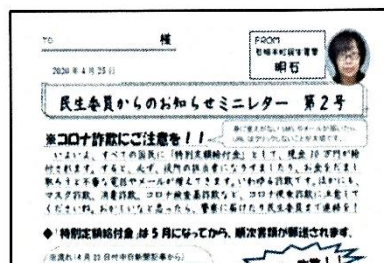 TO 様
FROM
民生委員
明石
2020年4月25日
民生委員からのお知らせミニレター 第2号
※コロナ詐欺にご注意を！！
いよいよ、すべての国民に「特別定額給付金」として、現金10万円が給
付されます。すると、必ず、役所の担当者になりすましたり、お金をだまし
取ろうと不審な電話やメールが増えてきます。いわゆる詐欺です。ほかにも、
マスク詐欺、消毒詐欺、コロナ検査薬詐欺など、コロナ便乗詐欺に注意して
くださいね。おかしいなと思ったら、警察に届けたり民生委員まで連絡を！
◆「特別定額給付金」は5月になってから、順次書類が郵送されます。